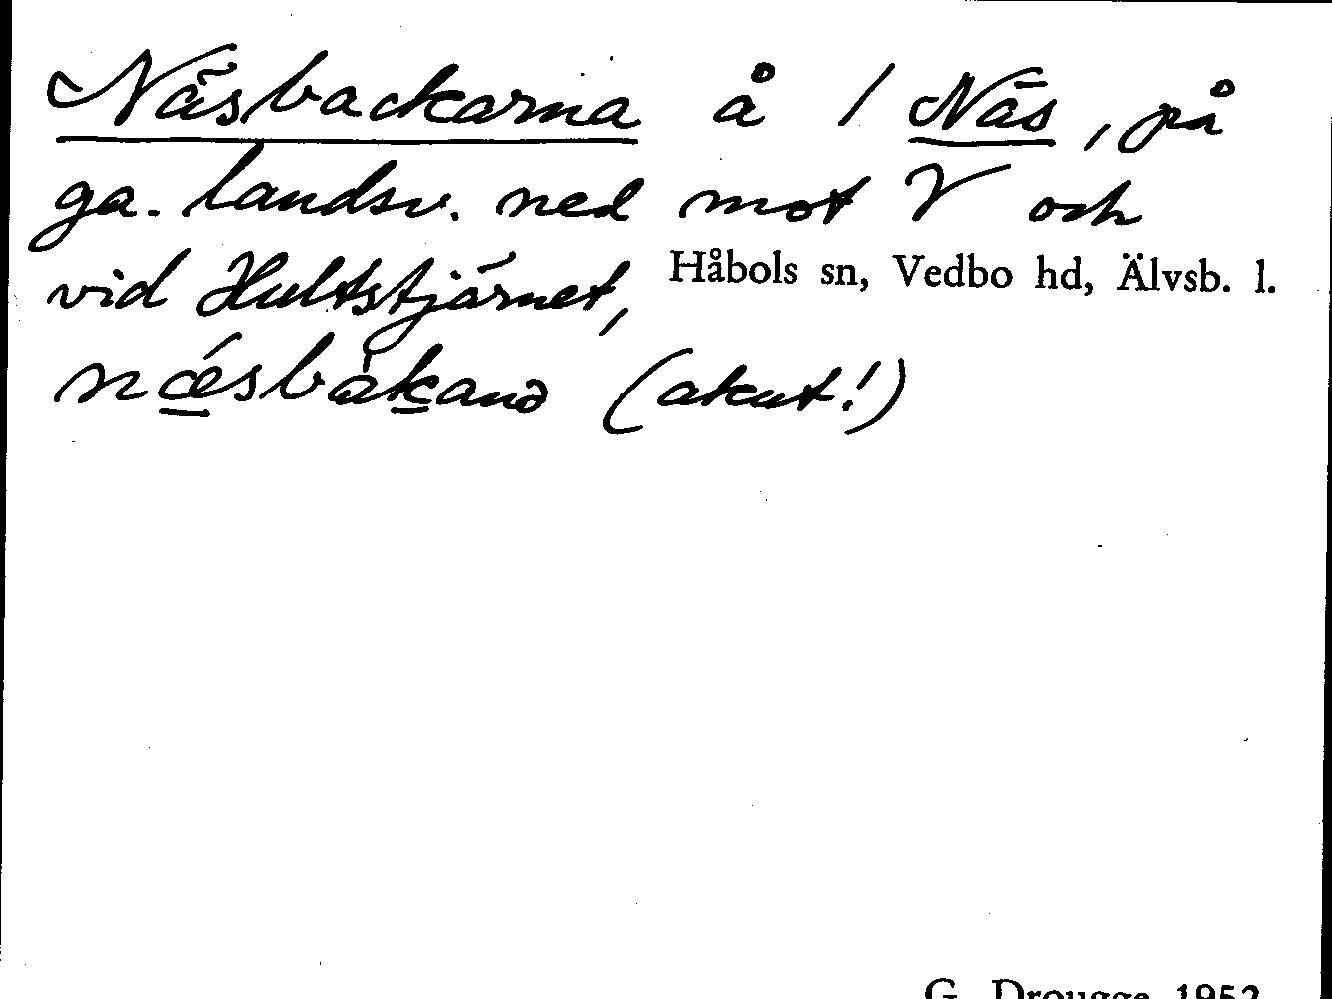 Näsbackarna å / Näs, på
ga. landsv. ned mot V och
vid Hultstjärnet,
Håbols sn, Vedbo hd, Älvsb. l.
næ̀sbàkanə (akut!)
G. Drougge 1952